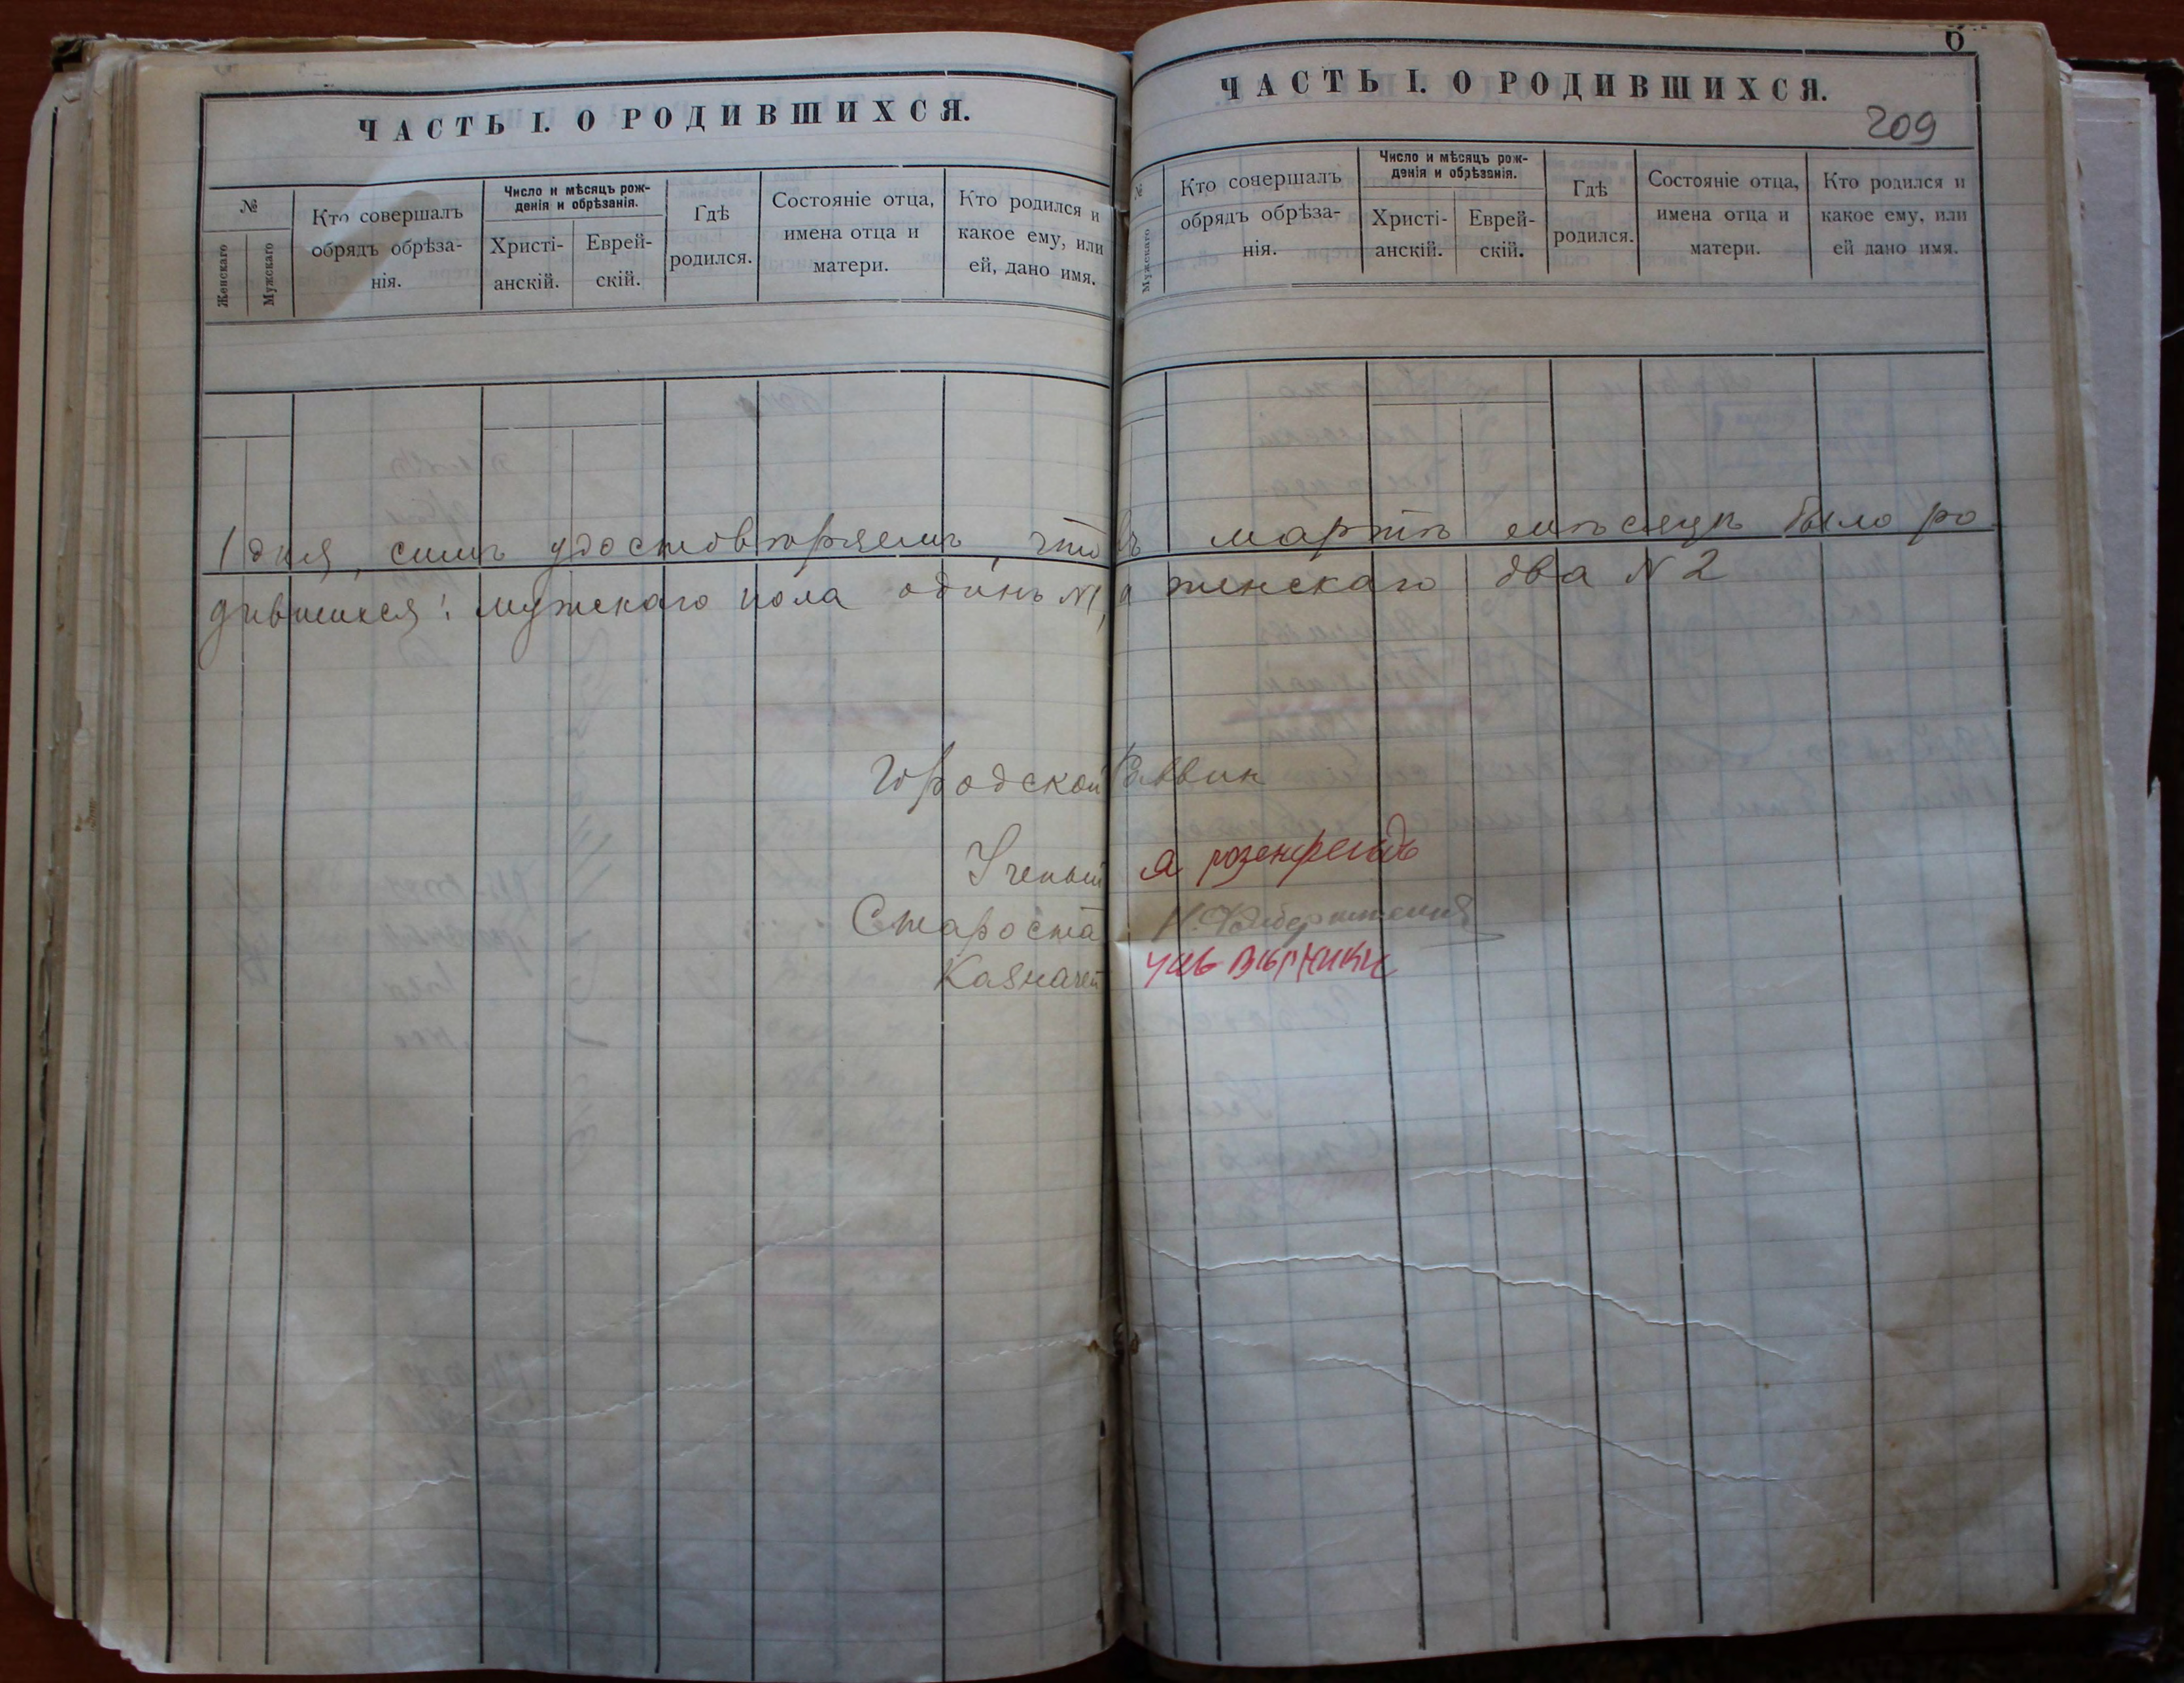 ЧАСТЬ I. О РОДИВШИХСЯ.
№
Женскаго
Мужскаго
Кто совершалъ
обрядъ обрѣза-
нія.
Число и мѣсяцъ рож-
денія и обрѣзанія.
Христі-
анскій.
Еврей-
скій.
Гдѣ
родился.
Состояніе отца,
имена отца и
матери.
Кто родился и
какое ему, или
ей, дано имя.
6
ЧАСТЬ I. О РОДИВШИХСЯ.
209
№
Мужскаго
Кто совершалъ
обрядъ обрѣза-
нія.
Число и мѣсяцъ рож-
денія и обрѣзанія.
Христі-
анскій.
Еврей-
скій.
Гдѣ
родился.
Состояніе отца,
имена отца и
матери.
Кто родился и
какое ему, или
ей дано имя.
1 дня, симъ удостовѣряемъ, что въ мартѣ мѣсяцѣ было ро
дившихся: мужскаго пола одинъ N1, а женскаго два N 2
Городской Раввин
Ученый Я Розенфельдъ
Староста
Казначей